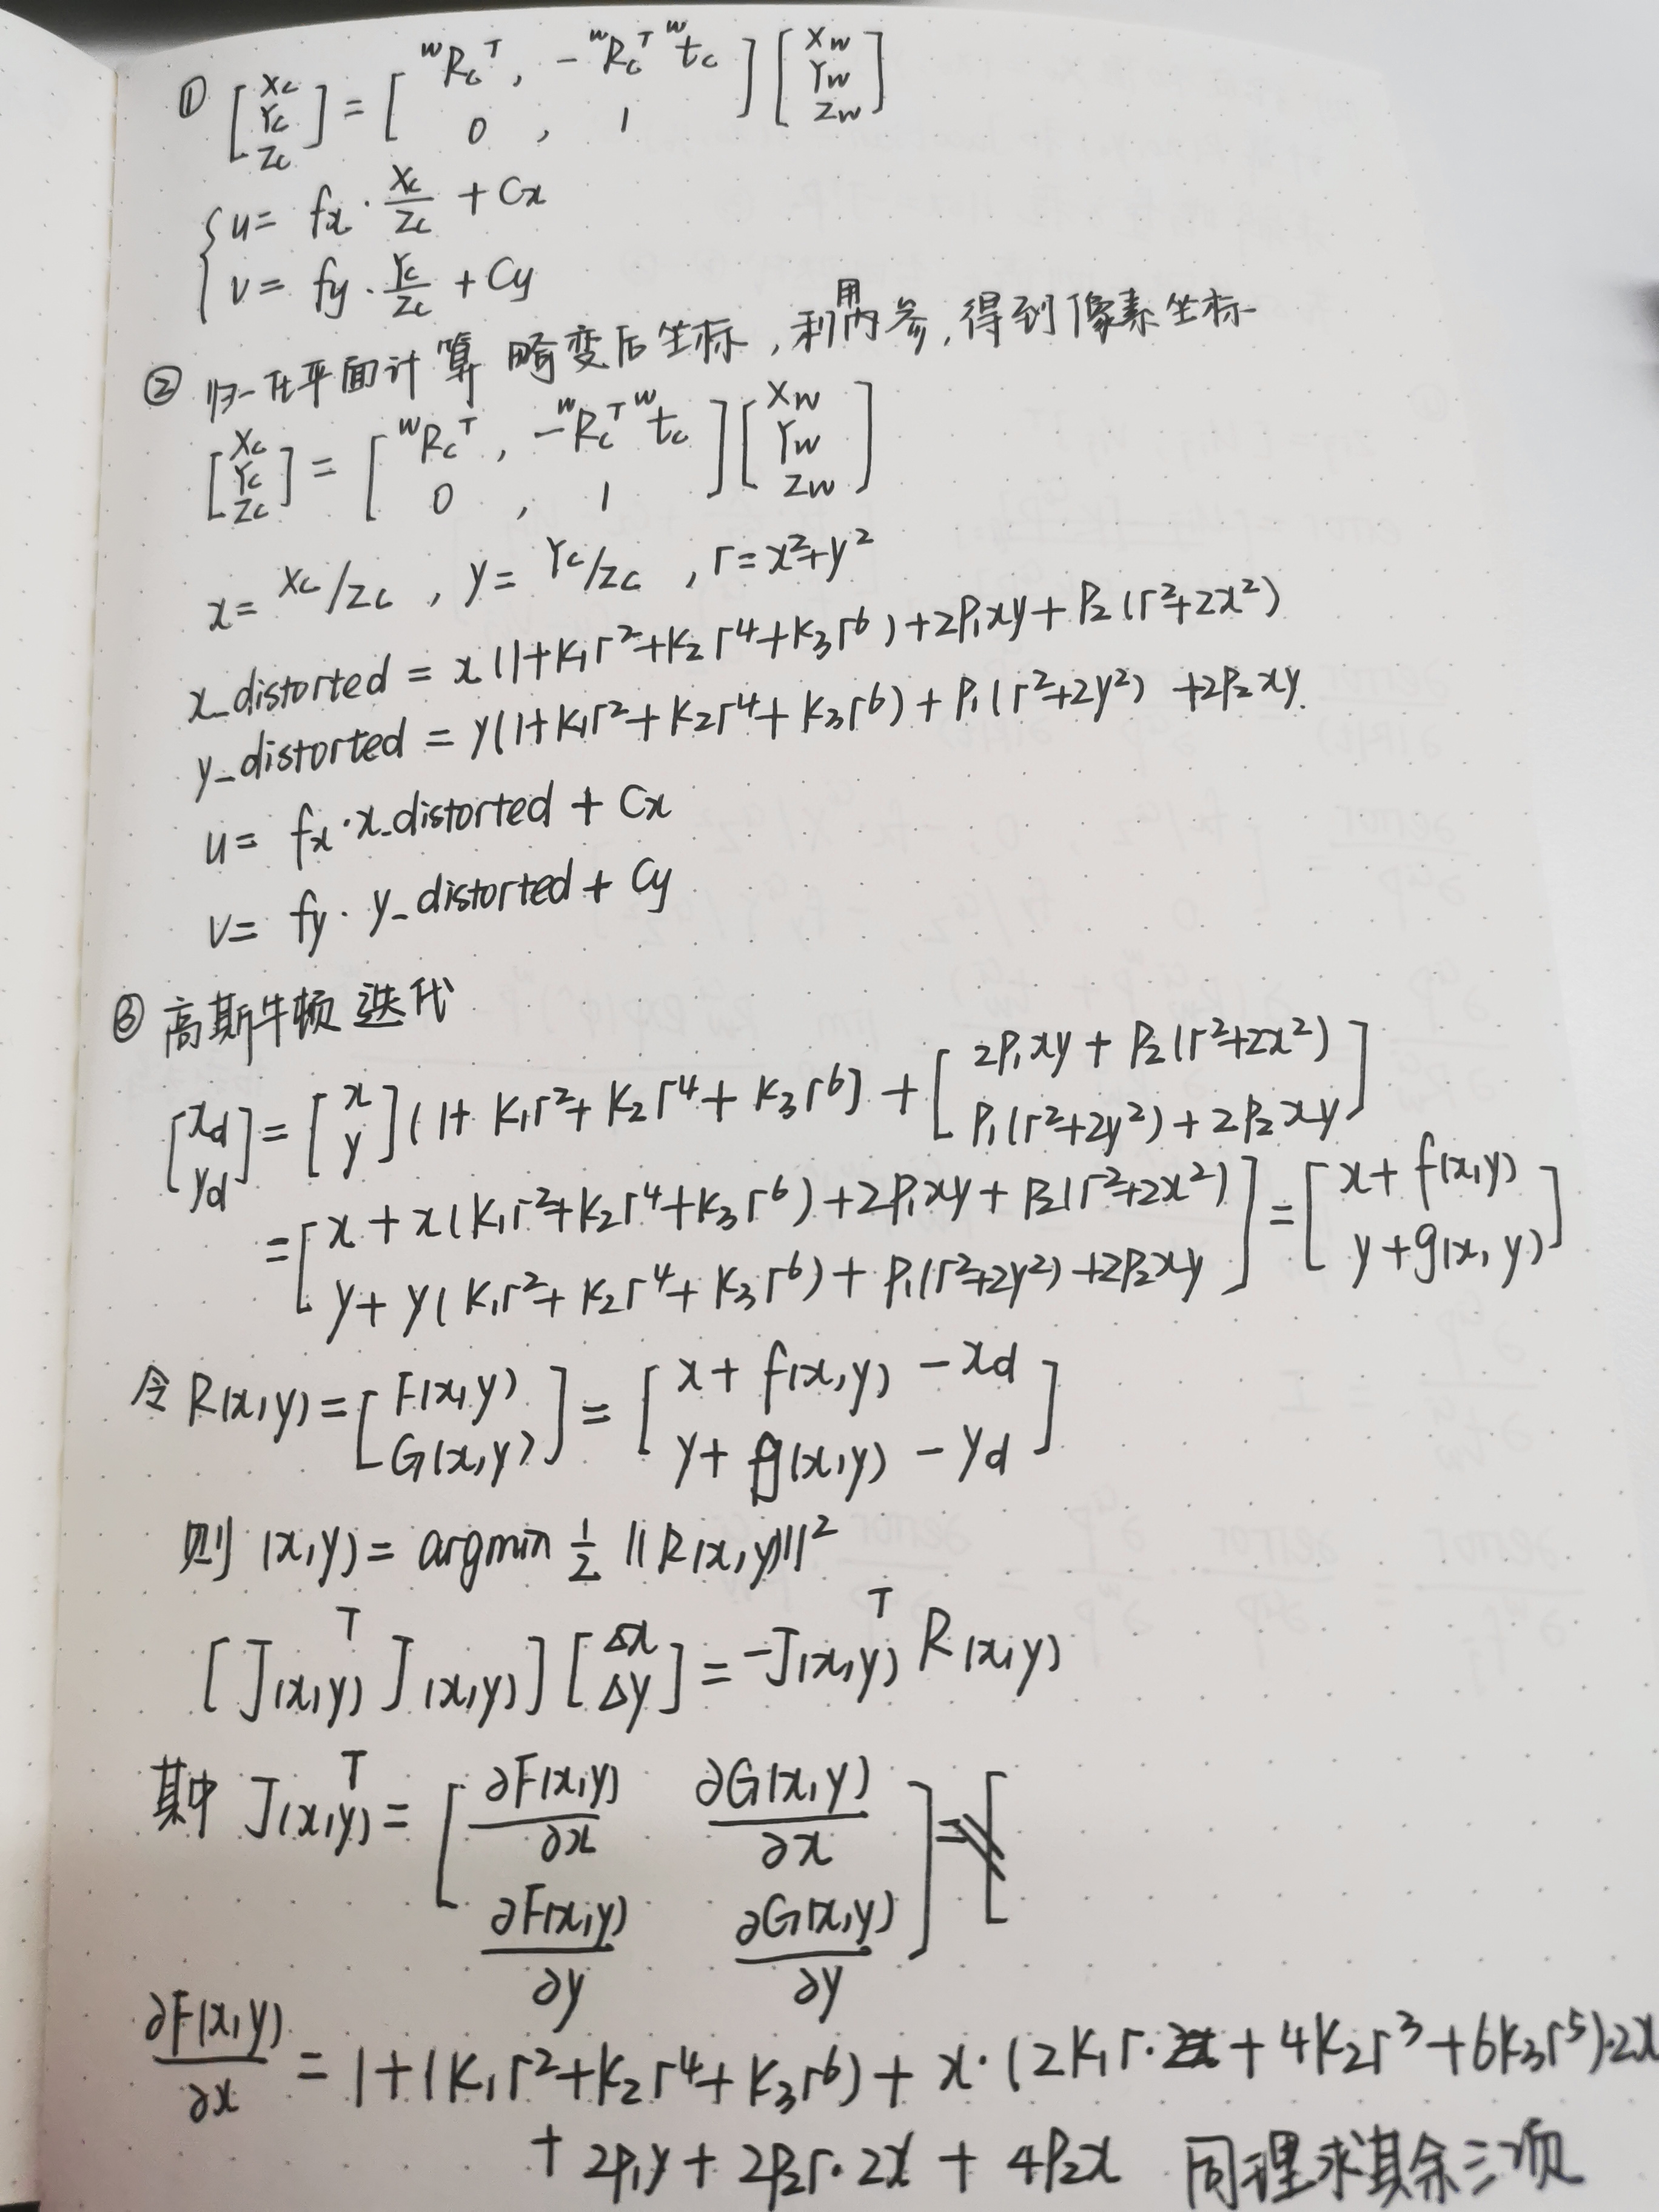 ① [Xc Yc Zc] = [ʷRcᵀ, -ʷRcᵀ ʷtc; 0, 1] [Xw Yw Zw]
{ u = fx · Xc/Zc + Cx
v = fy · Yc/Zc + Cy
② 归一化平面计算 畸变后坐标, 利用内参, 得到像素坐标
[Xc Yc Zc] = [ʷRcᵀ, -ʷRcᵀ ʷtc; 0, 1] [Xw Yw Zw]
x = Xc/Zc, y = Yc/Zc, r = x²+y²
x_distorted = x(1+k₁r²+k₂r⁴+k₃r⁶)+2P₁xy+P₂(r²+2x²)
y_distorted = y(1+k₁r²+k₂r⁴+k₃r⁶)+P₁(r²+2y²) +2P₂xy.
u = fx·x_distorted + Cx
v = fy· y_distorted + Cy
③ 高斯牛顿迭代
[xd yd] = [x y](1+ k₁r²+ k₂r⁴+ k₃r⁶) + [2P₁xy + P₂(r²+2x²); P₁(r²+2y²) + 2P₂xy]
= [x + x(k₁r²+k₂r⁴+k₃r⁶)+2P₁xy + P₂(r²+2x²); y + y(k₁r²+k₂r⁴+k₃r⁶) + P₁(r²+2y²)+2P₂xy] = [x+f(x,y); y+g(x,y)]
令 R(x,y) = [F(x,y); G(x,y)] = [x + f(x,y) - xd; y + g(x,y) - yd]
则 (x,y) = argmin ½ ||R(x,y)||²
[J(x,y)ᵀ J(x,y)] [Δx Δy] = -J(x,y)ᵀ R(x,y)
其中 J(x,y)ᵀ = [∂F(x,y)/∂x ∂G(x,y)/∂x; ∂F(x,y)/∂y ∂G(x,y)/∂y]
∂F(x,y)/∂x = 1+(k₁r²+k₂r⁴+k₃r⁶) + x·(2k₁r·+4k₂r³+6k₃r⁵)·2x
+ 2P₁y + 2P₂r·2x + 4P₂x 同理求其余三项